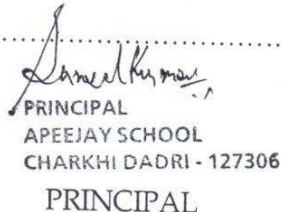 PRINCIPAL
APEEJAY SCHOOL
CHARKHI DADRI - 127306
PRINCIPAL